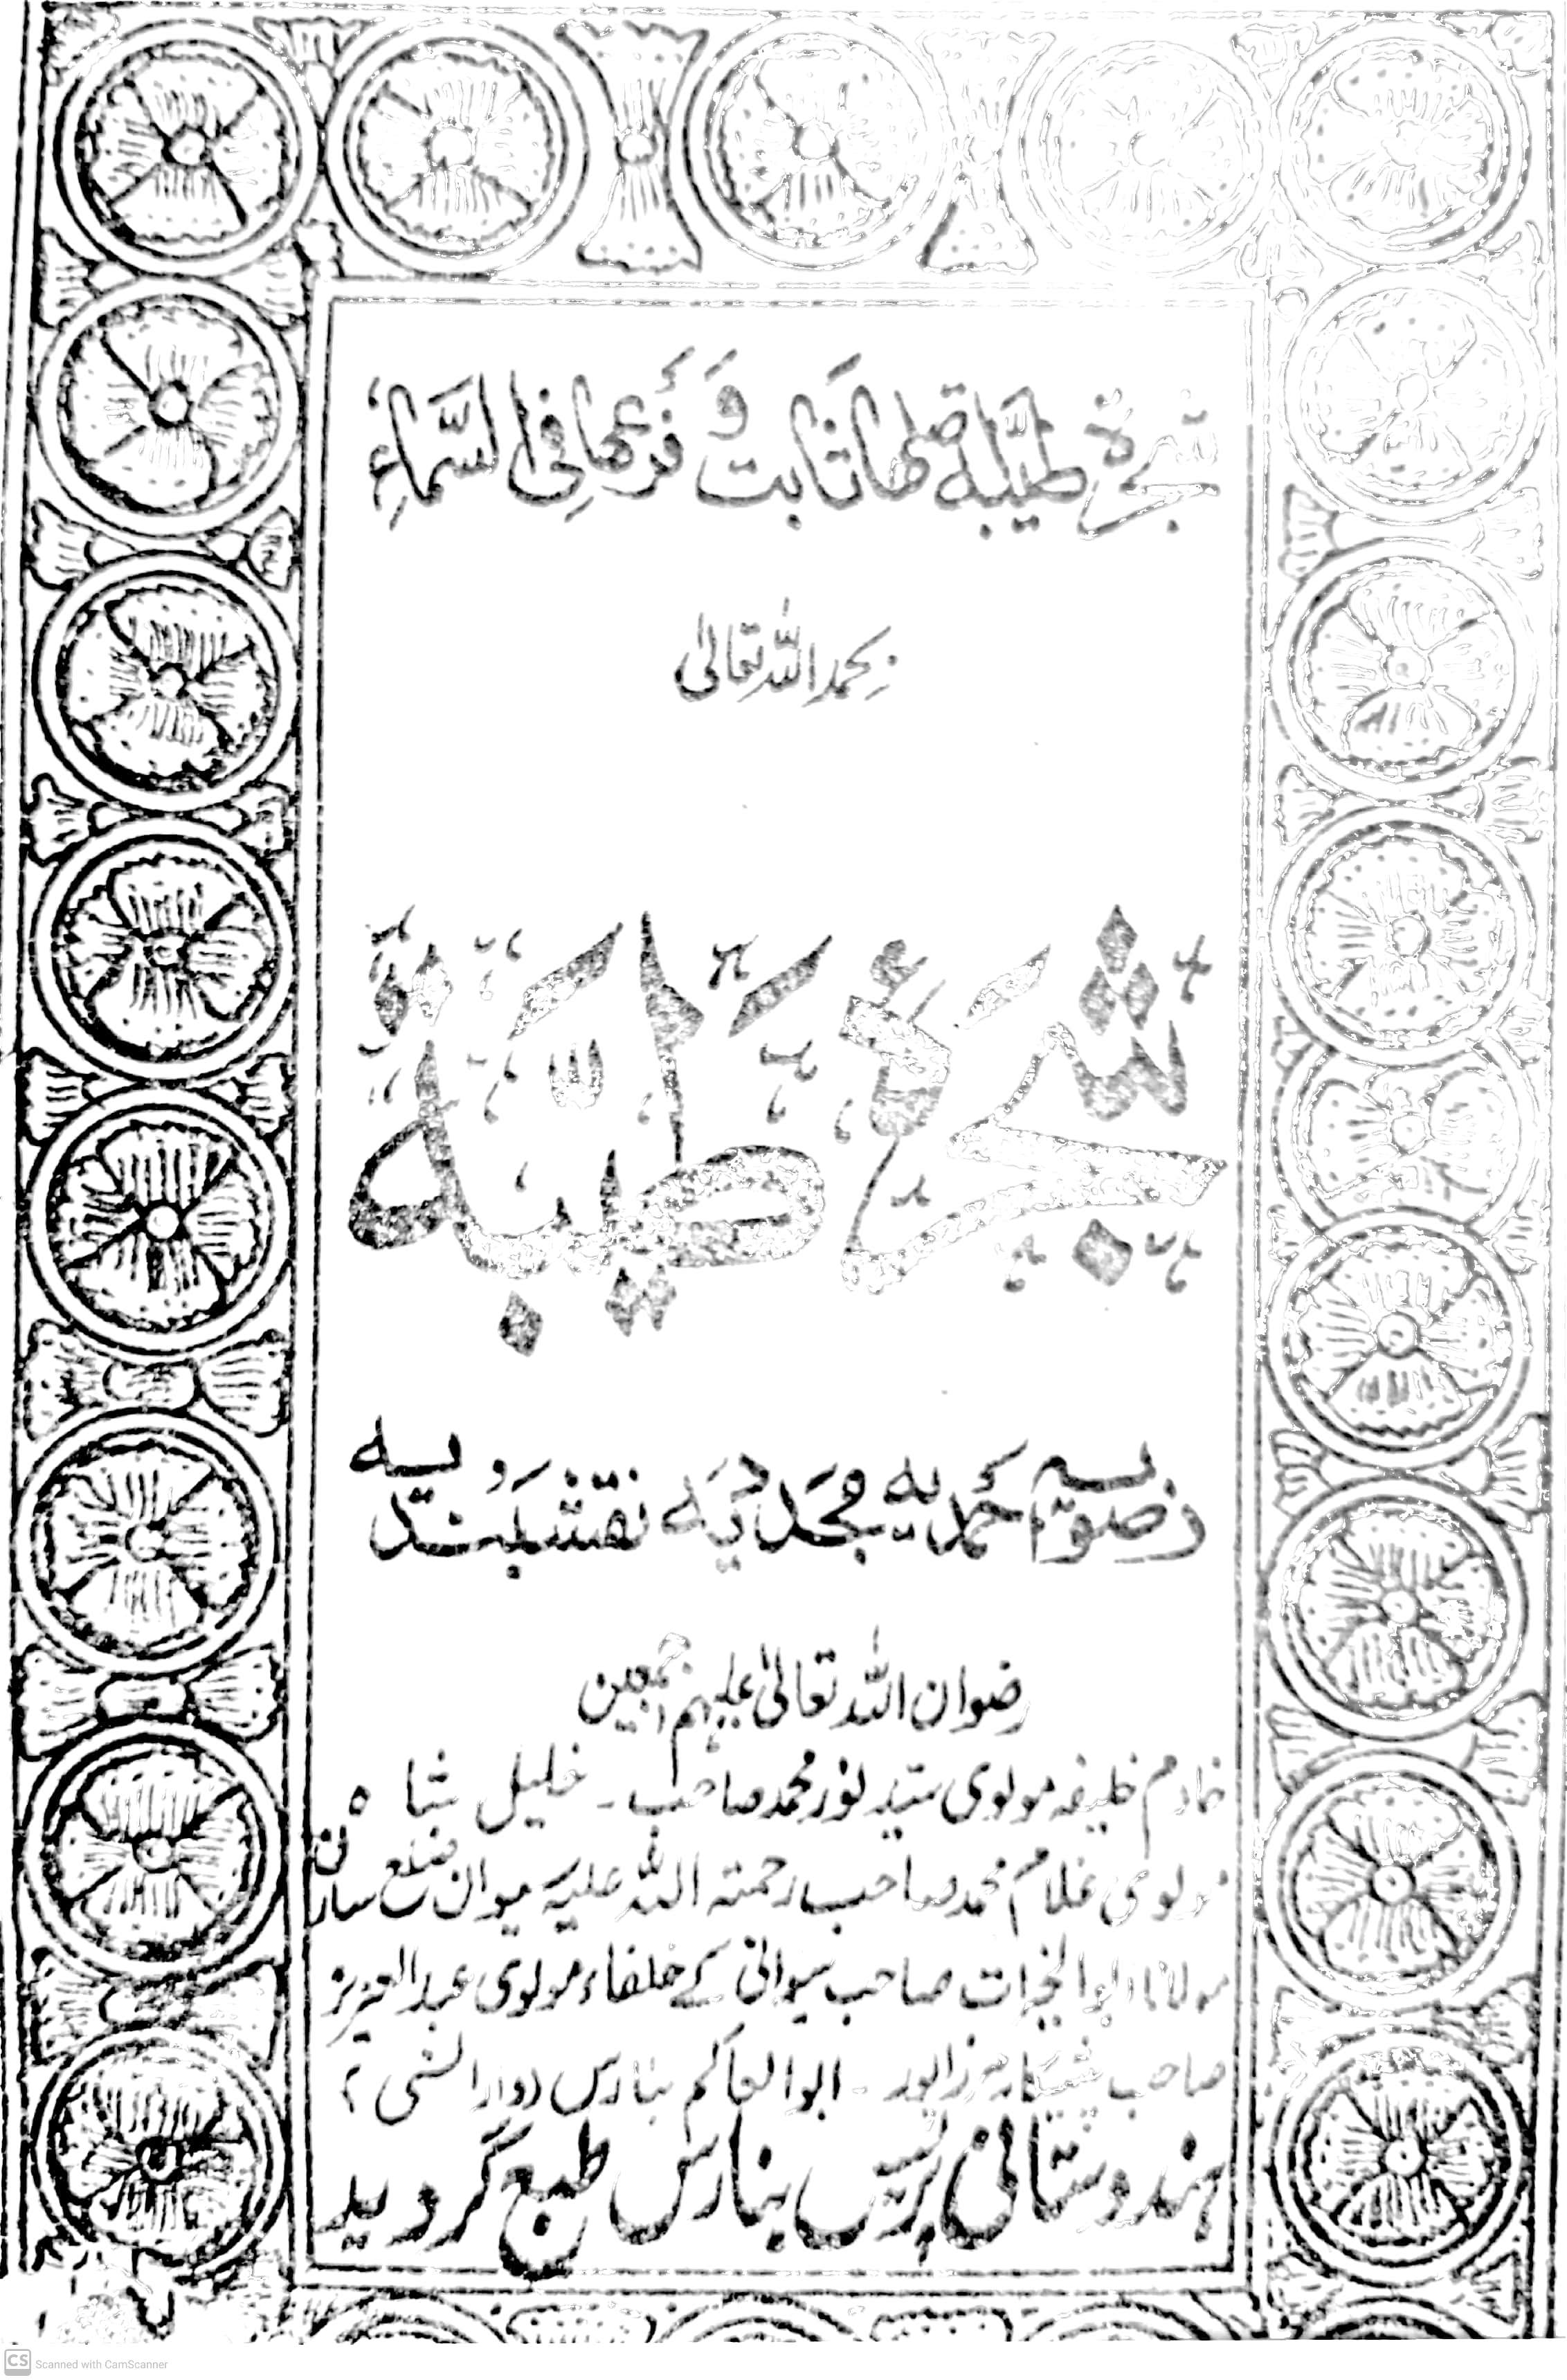 شجرۃ طیّبۃ اصلها ثابت وَّ فَرعها فی السَّماءِ
بحمد اللہ تعالٰی
شجرۂ طیّبہ
رضویہ احمدیہ مجدّدیَہ نقشبَندیہ
رضوان اللہ تعالٰی علیہم اجمعین
خادم خلیفہ مولوی سید نور محمد صاحب ۔ خلیل شاہ
مولوی غلام محمد صاحب رحمتہ اللہ علیہ سیوان ضلع سارن
مولانا ابوالخیرات صاحب سیوانی کے خلفاء مولوی عبدالعزیز
صاحب ۔ ابوالعاکم بنارس
ہندوستانی پریس بنارس طبع گردید
CS Scanned with CamScanner